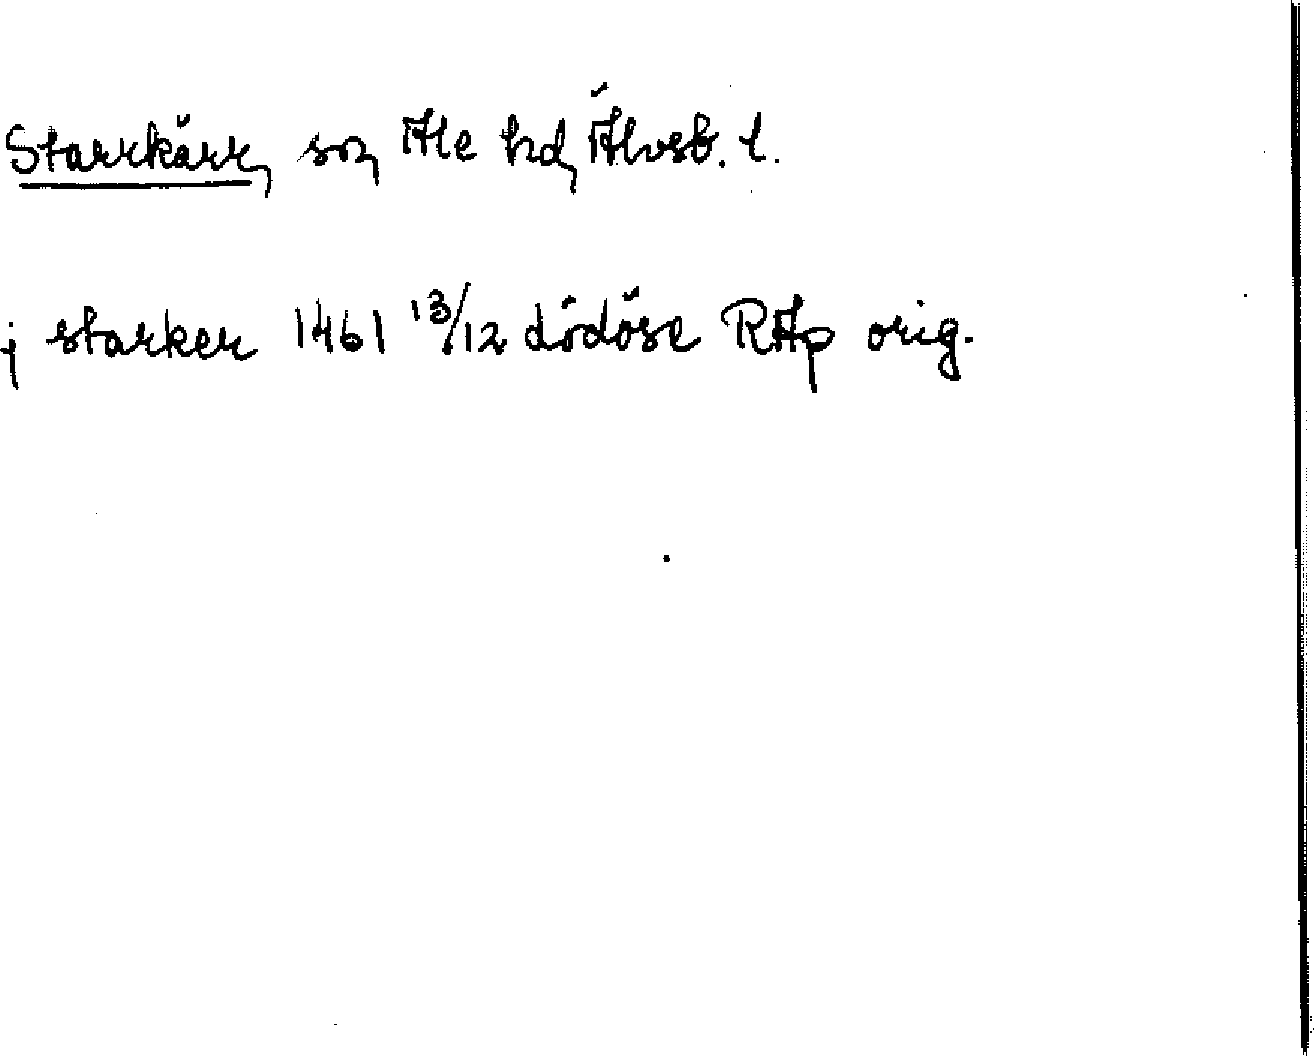 Starrkärr, sn, Ale hd, Älvsb. l.
j starker 1461 13/12 Lödöse RAp orig.